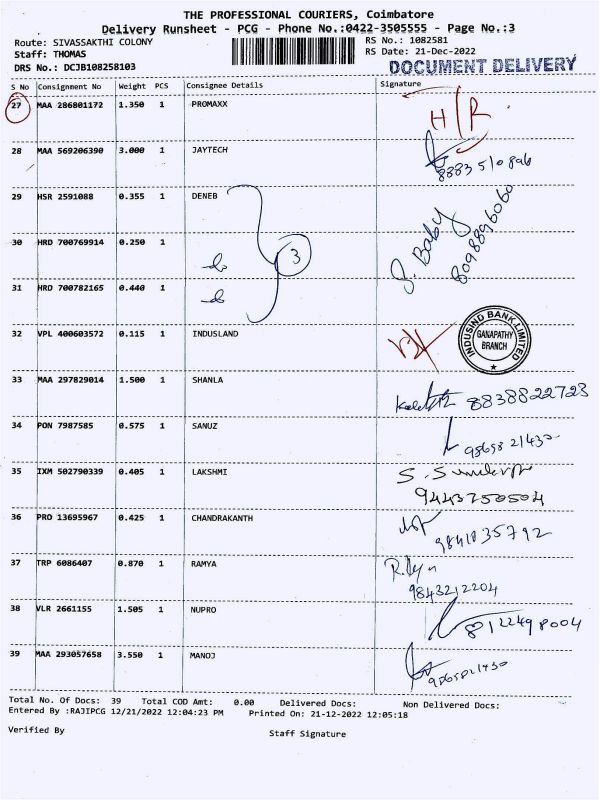 THE PROFESSIONAL COURIERS, Coimbatore
Delivery Runsheet - PCG - Phone No.:0422-3505555 - Page No.:3
Route: SIVASSAKTHI COLONY RS No.: 1082581
Staff: THOMAS RS Date: 21-Dec-2022
DRS No.: DCJB108258103 DOCUMENT DELIVERY
S No Consignment No Weight PCS Consignee Details Signature
27 MAA 286801172 1.350 1 PROMAXX H/R
28 MAA 569206390 3.000 1 JAYTECH 8883510896
29 HSR 2591088 0.355 1 DENEB
30 HRD 700769914 0.250 1 do 3 S. Baby 8098896060
31 HRD 700782165 0.440 1 do
32 VPL 400603572 0.115 1 INDUSLAND INDUSIND BANK LIMITED GANAPATHY BRANCH
33 MAA 297829014 1.500 1 SHANLA 8838822723
34 PON 7987585 0.575 1 SANUZ
35 IXM 502790339 0.405 1 LAKSHMI
9443750504
36 PRO 13695967 0.425 1 CHANDRAKANTH 9841035792
37 TRP 6086407 0.870 1 RAMYA
9843212204
38 VLR 2661155 1.505 1 NUPRO 8122498004
39 MAA 293057658 3.550 1 MANOJ
Total No. Of Docs: 39 Total COD Amt: 0.00 Delivered Docs: Non Delivered Docs:
Entered By :RAJIPCG 12/21/2022 12:04:23 PM Printed On: 21-12-2022 12:05:18
Verified By Staff Signature